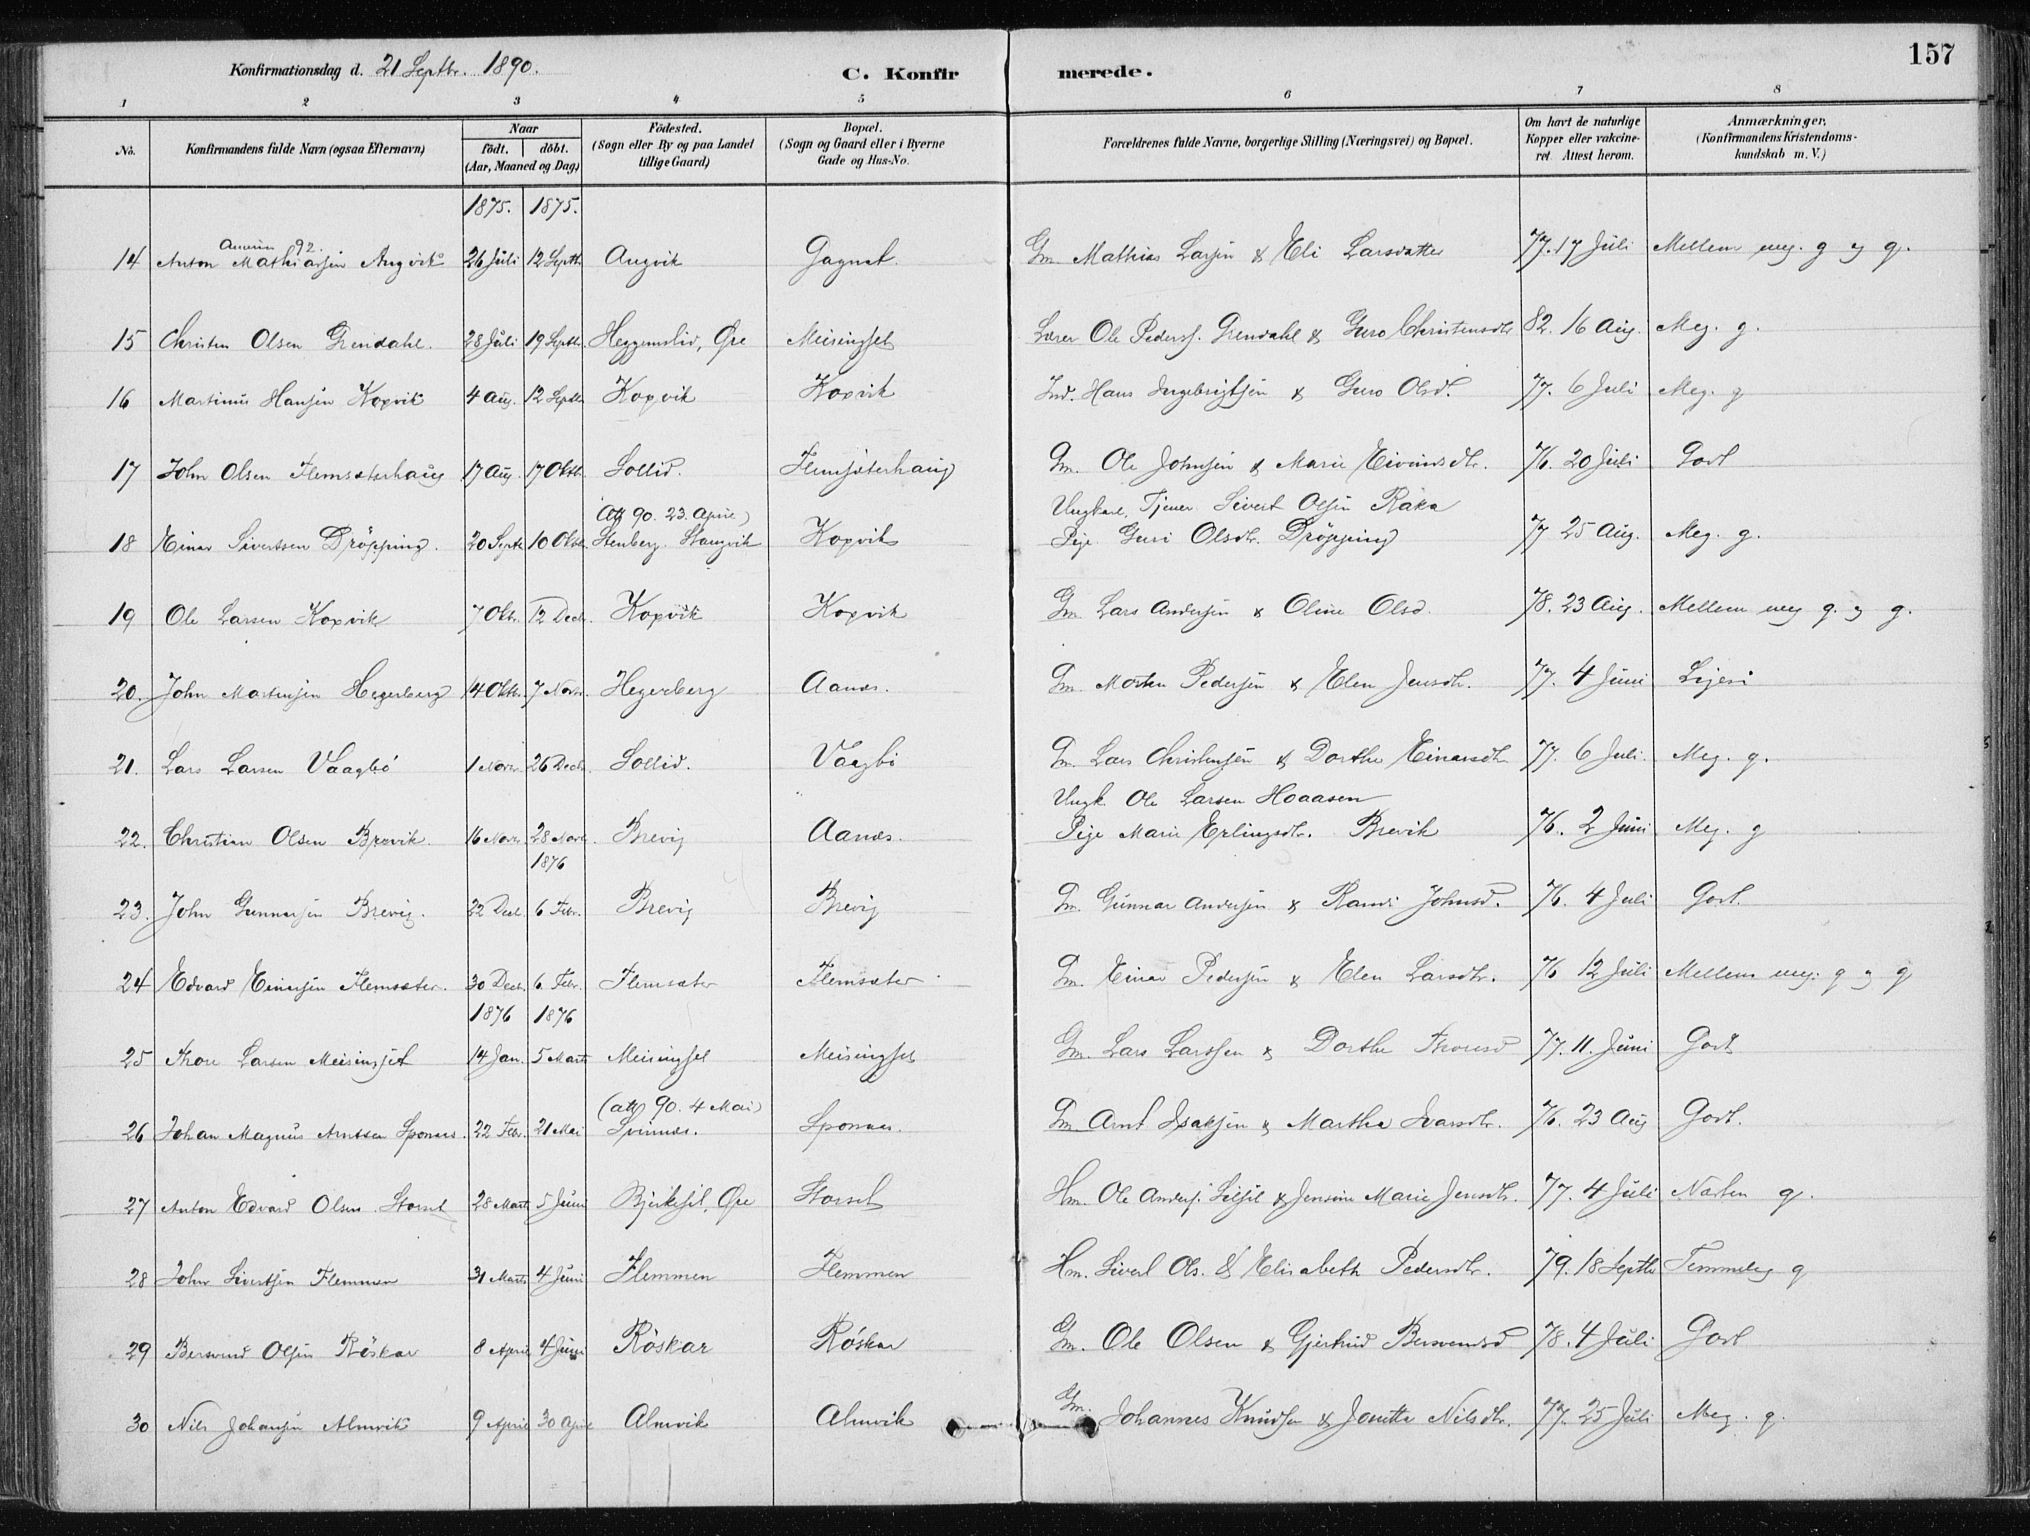 157
Konfirmationsdag d. 21 Septbr. 1890.
C. Konfirmerede.
1 2 3 4 5 6 7 8
No. Konfirmandens fulde Navn (ogsaa Efternavn) Naar födt. döbt. (Aar, Maaned og Dag) Födested. (Sogn eller By og paa Landet tillige Gaard) Bopæl. (Sogn og Gaard eller i Byerne Gade og Hus-No. Forældrenes fulde Navne, borgerlige Stilling (Næringsvei) og Bopæl. Om havt de naturlige Kopper eller vakcineret. Attest herom. Anmærkninger. (Konfirmandens Kristendomskundskab m. V.)
1875. 1875.
92.
14 Anton Mathiasjen Angvik 26 Juli 12 Septb. Angvik Gagnat. Gm. Mathias Larsjen & Eli Larsdatter 77. 17 Juli Mellem meg. g og g.
15 Christen Olsen Grendahl. 28 Juli 19 Septb. Heggemslid, Øre Meisingset Lærer Ole Peders. Grendahl & Guro Christensdtr 82. 16 Aug. Meg. g.
16 Martinus Hansen Koxvik 4 Aug. 12 Septb. Koxvik Koxvik Ind. Hans Ingebrigtsen & Guro Olsd. 77. 6 Juli Meg. g
17 John Olsen Flemsæterhaug 17 Aug. 17 Oktb. Sollid. Flemsæterhaug Gm. Ole Johnsen & Marie Eivindsdtr. 76. 20 Juli Godt
18 Einar Sivertsen Dröpping. 20 Septb 10 Oktb. (Att 90. 23. April) Stenberg. Stangvik Koxvik Ungkarl, Tjener Sivert Olsen Raka
Pige Guri Olsdtr. Dröpping 77 25 Aug. Meg. g.
19 Ole Larsen Koxvik 7 Oktb. 12 Decb. Koxvik Koxvik Gm. Lars Andersen & Oline Olsd. 78. 23 Aug. Mellem meg g. og g.
20. John Martinsen Hegerberg 14 Oktb. 7 Novb. Hegerberg Aanæs. Gm. Morten Pedersen & Elen Jensdtr. 77. 4 Juni
21. Lars Larsen Vaagbö 1 Novb. 26 Decb. Sollid. Vaagbö Gm. Lars Christensen & Dorthe Einarsdtr 77. 6 Juli. Meg. g.
22. Christian Olsen Brevik. 16 Novb. 28 Novb. Brevig Aanæs. Ungk. Ole Larsen Hoaasen
Pige Marie Erlingsdtr. Brevik 76. 2 Juni Meg. g
1876
23. John Gunnarsen Brevig. 22 Decb. 6 Febr. Brevig Brevig Gm. Gunnar Andersen & Randi Johnsd. 76. 4 Juli Godt.
24 Edvard Einarsen Flemsæter. 30 Decb. 6. Febr. Flemsæter Flemsæter Gm. Einar Pedersen & Elen Larsdtr. 76 12 Juli Mellem meg. g og g
1876 1876
25 Thore Larsen Meisingset 14 Jan. 5 Marts Meisingset Meisingset Gm. Lars Larssen & Dorthe Thoresd 77. 11. Juni Godt
26 Johan Magnus Arntsen Sponæs. 22 Febr. 21 Mai (att 90. 4 Mai) Svinnæs. Sponæs. Gm Arnt Isaksen & Martha Ivarsdtr. 76. 23 Aug Godt.
27 Anton Edvard Olsen Storset 28 Marts 5 Juni Bjerkeset, Øre Storset Hm. Ole Anders. & Jensine Marie Jensdtr. 77. 4 Juli Næsten g.
28 John Sivertsen Flemmen 31 Marts 4 Juni Flemmen Flemmen Hm. Sivert Ols. & Elisabeth Pedersdtr. 79. 18 Septb Temmelig g
29 Bersvend Olsen Röskar 8 April 4 Juni Röskar Röskar Gm. Ole Olsen & Gjertrud Bersvendsd 78. 4 Juli Godt
30 Nils Johansen Almvik 9 April 30 April Almvik Almvik Gm. Johannes Knudsen & Jonetta Nilsdtr. 77. 25 Juli Meg. g.